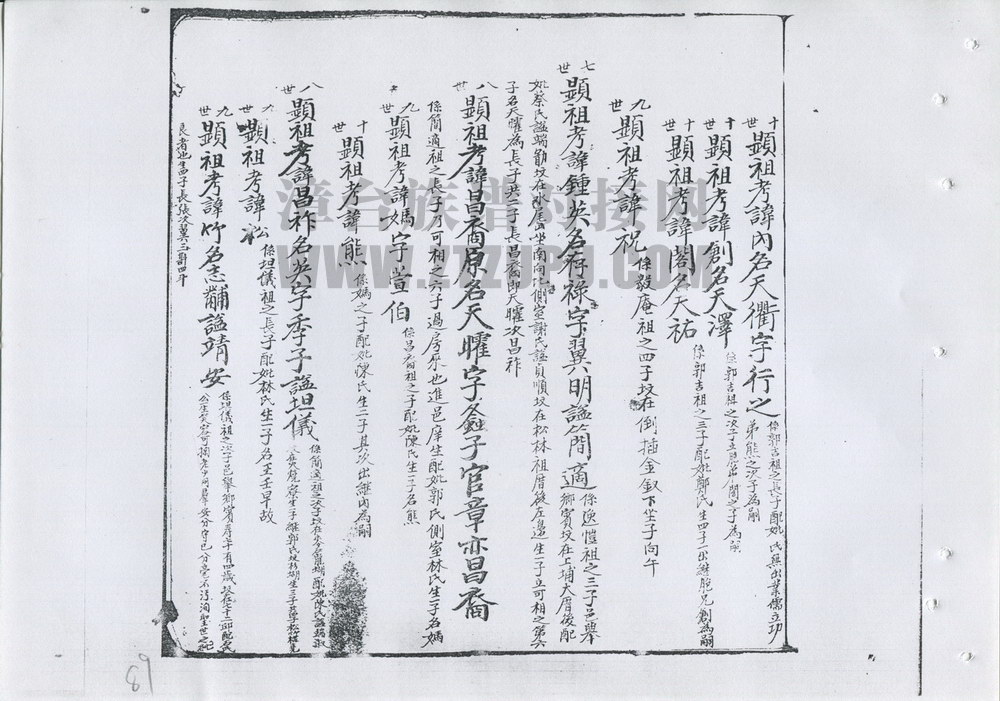 十世 顯祖考諱內名天衢字行之 係郭吉祖之長子配妣 氏無出業儒立功
弟熊之次子為嗣
十世 顯祖考諱創名天澤 係郭吉祖之次子立胞弟閣之子為嗣
十世 顯祖考諱閣名天祐 係郭吉祖之三子配妣鄭氏生四子一出継胞兄創為嗣
九世 顯祖考諱祝 係毅庵祖之四子坟在倒插金釵下坐子向午
七世 顯祖考諱鍾英名存祿字翼明謚簡適 係逸愷祖之三子邑舉
鄉賓坟在上埔大厝後配
妣蔡氏謚端勤坟在水尾山坐南向北側室謝氏謚貞順坟在松林祖厝後左邊生一子立可相之第六
子名天曜為長子共二子長昌裔即天曜次昌祚
八世 顯祖考諱昌裔原名天曜字 子官章亦昌裔
係簡適祖之長子乃可相之六子過房承也進邑庠生配妣郭氏側室林氏生一子名媽
九世 顯祖考諱媽字萱伯 係昌裔祖之子配妣陳氏生一子名熊
十世 顯祖考諱熊 係媽之子配妣陳氏生二子其次出継內為嗣
八世 顯祖考諱昌祚名英字季子謚坦儀 係簡適祖之次子坟在 配妣陳氏謚
九世 顯祖考諱松 係坦儀祖之長子配妣林氏生一子名王壬早故
九世 顯祖考諱竹名志黼謚靖安 係坦儀祖之次子邑舉鄉賓壽七十有四歲
長者也 子長張次翼三 四斗
漳台族谱对接网
www.zzzupu.com
89